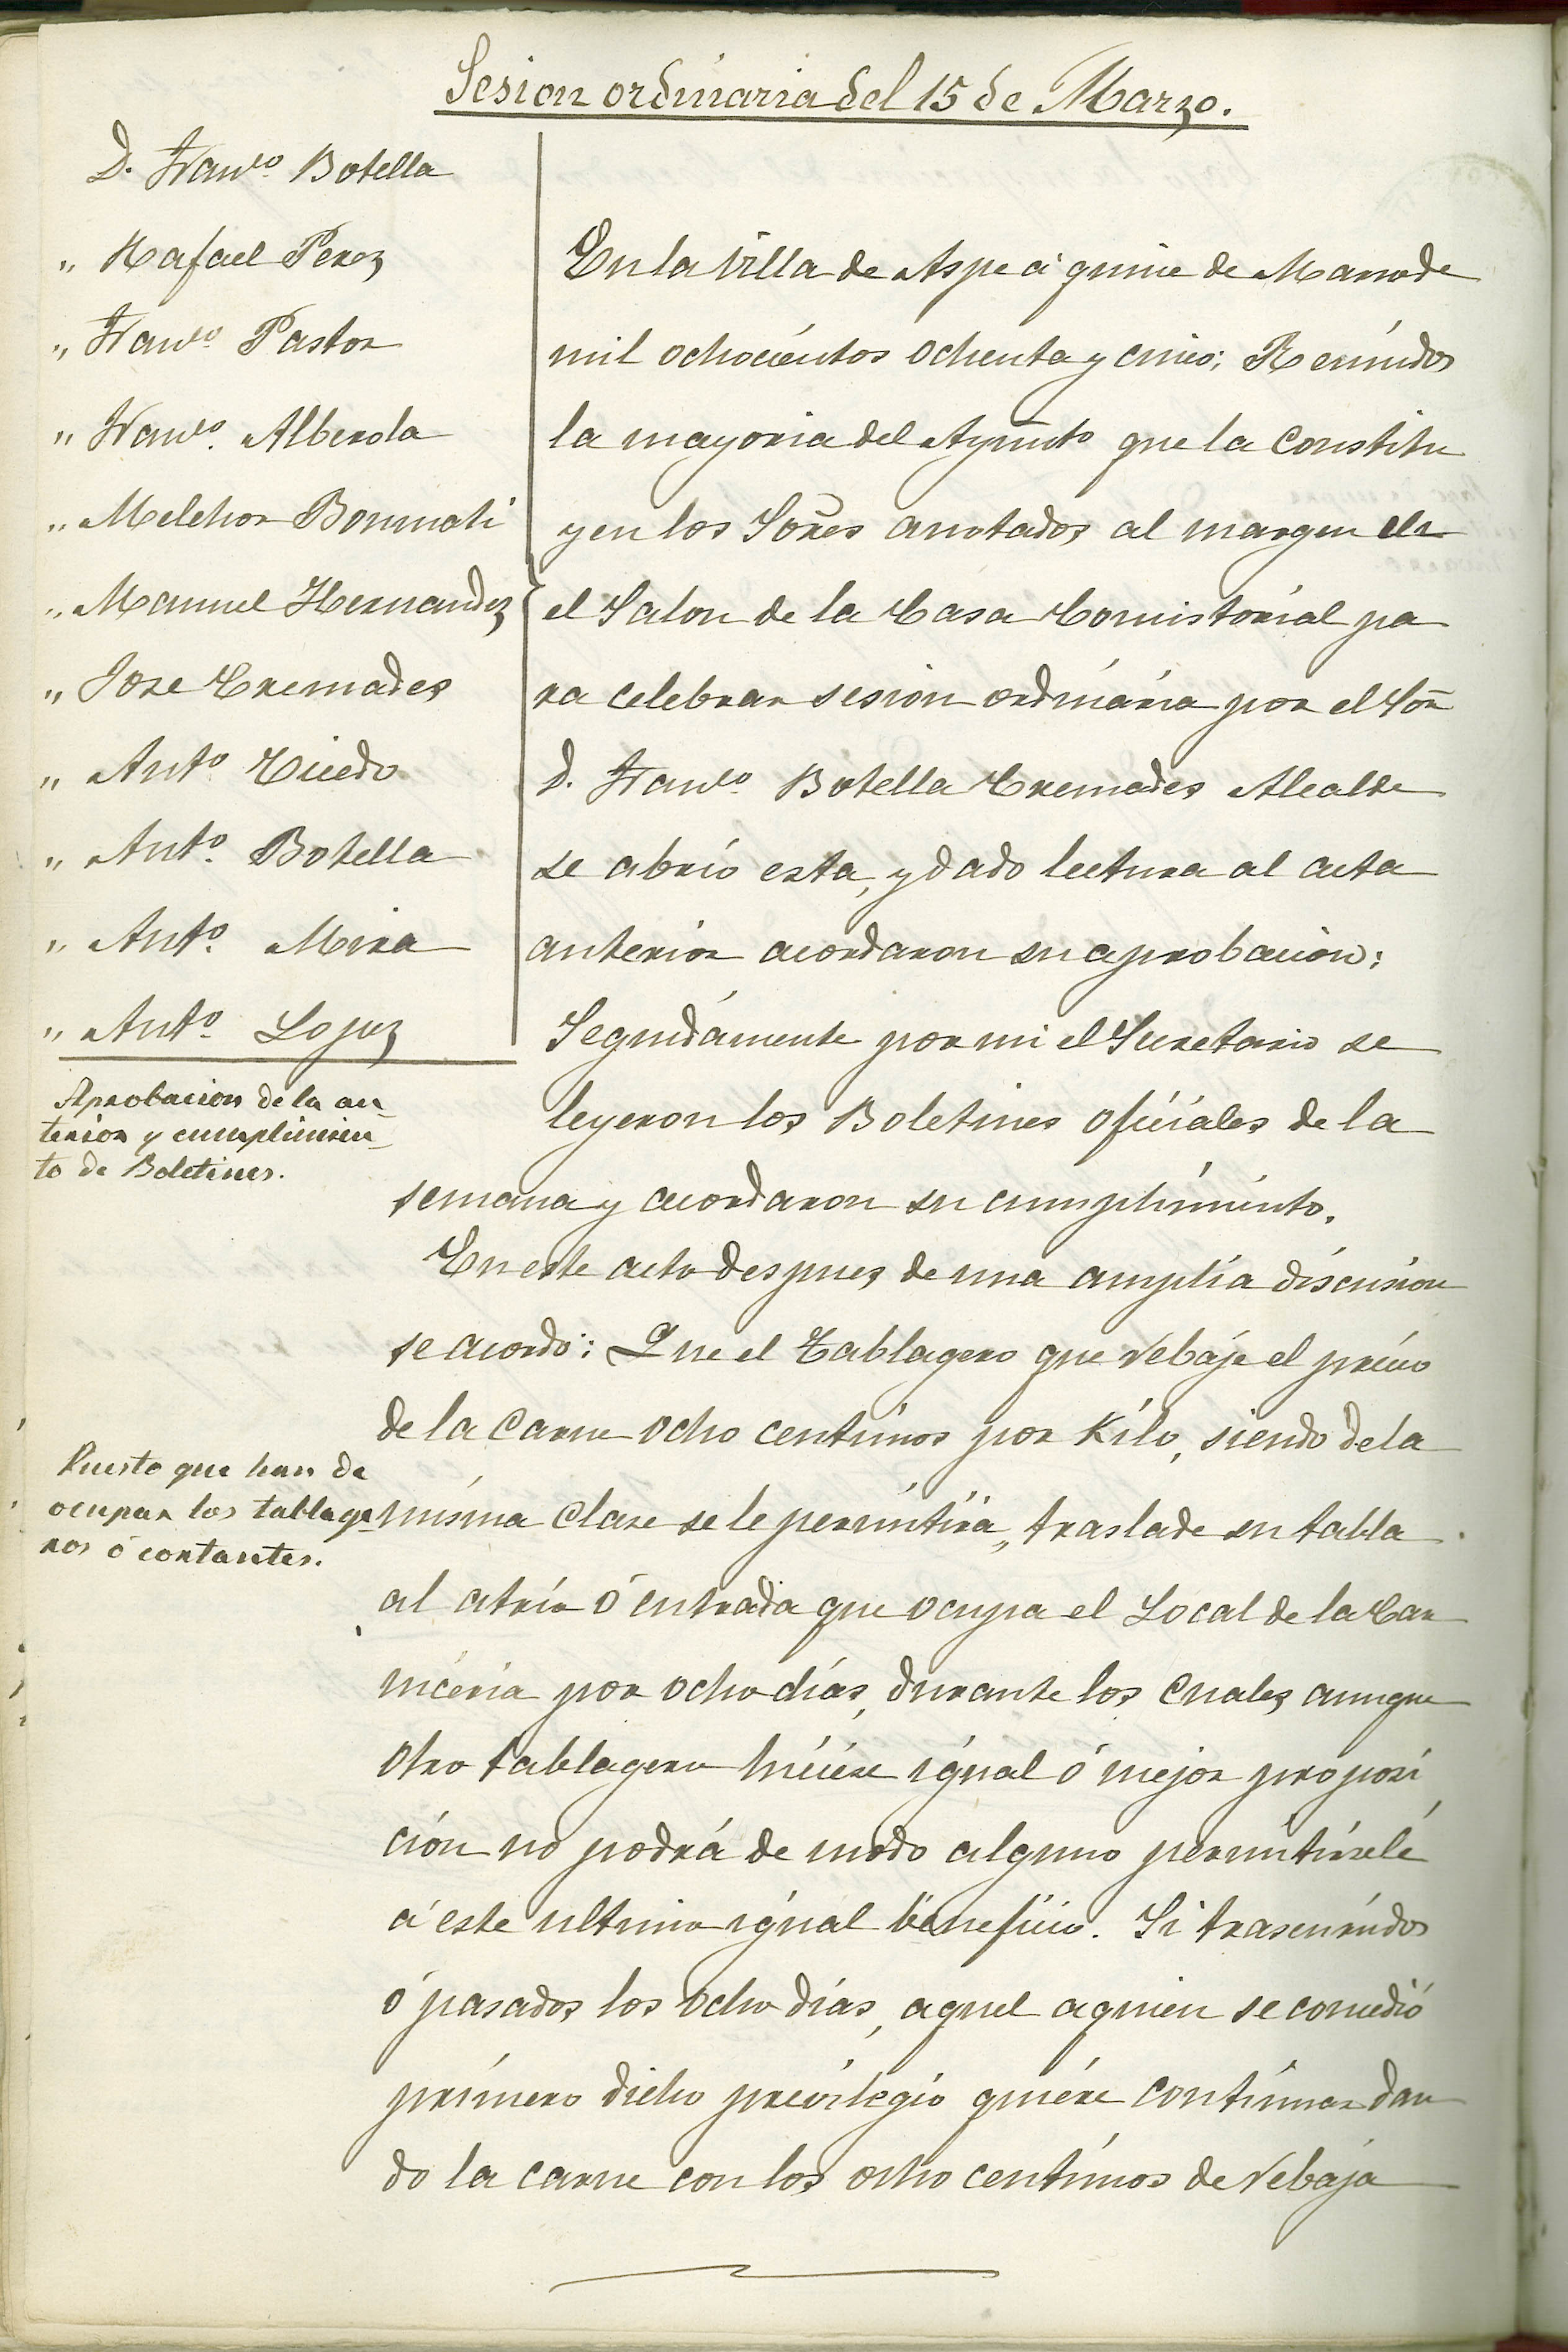 Sesion ordinaria del 15 de Marzo.
D. Franco. Botella
" Rafael Perez
" Franco. Pastor
" Franco. Alberola
" Melchor Bonmati
" Manuel Hernandez
" Jose Cremades
" Anto. 
" Anto. Botella
" Anto. Mira
" Anto. Lopez
Aprobacion de la an_
terior y cumplimien_
to de Boletines.
Puesto que han de
ocupar los tablage_
ros ó cortantes.
En la Villa de Aspe á quince de Marzo de
mil ochocientos ochenta y cinco; Reunidos
la mayoria del Ayunto que la Constitu
yen los Sores anotados al margen en
el Salon de la Casa Consistorial pa
ra celebrar sesion ordinaria por el Sor
D. Franco. Botella Cremades Alcalde
se abrió esta, y dado lectura al acta
anterior acordaron su aprobacion:
Seguidamente por mi el Secretario se
leyeron los Boletines oficiales de la
semana y acordaron su cumplimiento.
En este acto despues de una amplia discusion
se acordó: Que el Tablagero que rebaje el precio
de la Carne ocho centimos por Kilo, siendo de la
misma Clase se le permitirá, traslade su tabla
al atrio ó entrada que ocupa el Local de la Car
niceria por ocho dias, durante los cuales aunque
otro tablagero hiciere igual ó mejor proposi
ción no podrá de modo alguno permitirsele
á este ultimo igual beneficio. Si trascurridos
ó pasados los ocho dias, aquel aquien se concedió
primero dicho previlegio quiere continuar dan
do la carne con los ocho centimos de rebaja